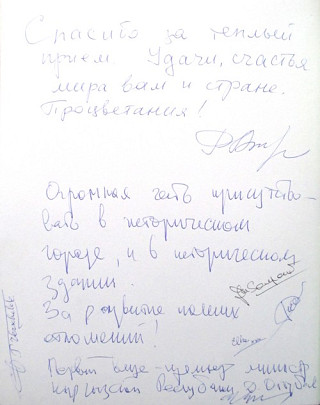 Спасибо за теплый
прием. Удачи, счастья
мира вам и стране.
Процветания!
Огромная честь присутство-
вать в историческом
городе, и в историческом
здании.
За развитие наших
отношений!
Первый вице-премьер министр
Кыргызской Республики